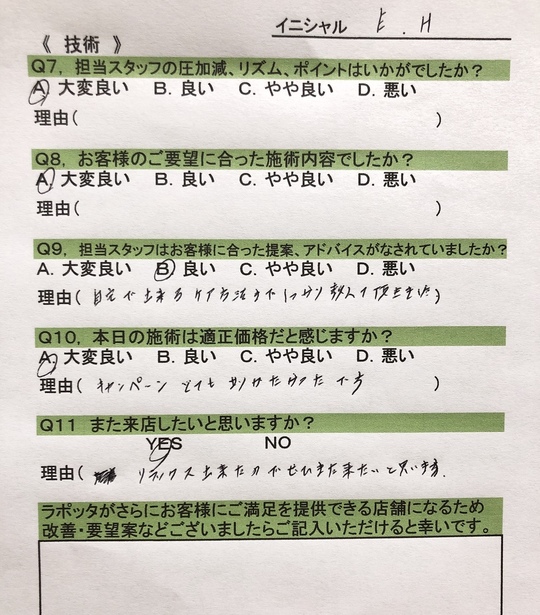 イニシャル E.H
《 技術 》
Q7, 担当スタッフの圧加減、リズム、ポイントはいかがでしたか?
A. 大変良い B. 良い C. やや良い D. 悪い
理由( )
Q8, お客様のご要望に合った施術内容でしたか?
A. 大変良い B. 良い C. やや良い D. 悪い
理由( )
Q9, 担当スタッフはお客様に合った提案、アドバイスがなされていましたか?
A. 大変良い B. 良い C. やや良い D. 悪い
理由( 自宅で出来るケア方法までしっかり教えて頂きました)
Q10, 本日の施術は適正価格だと感じますか?
A. 大変良い B. 良い C. やや良い D. 悪い
理由( キャンペーン とても ありがたかったです )
Q11 また来店したいと思いますか?
YES NO
理由( リラックス出来たのでぜひまた来たいと思います.
ラポッタがさらにお客様にご満足を提供できる店舗になるため
改善・要望案などございましたらご記入いただけると幸いです。